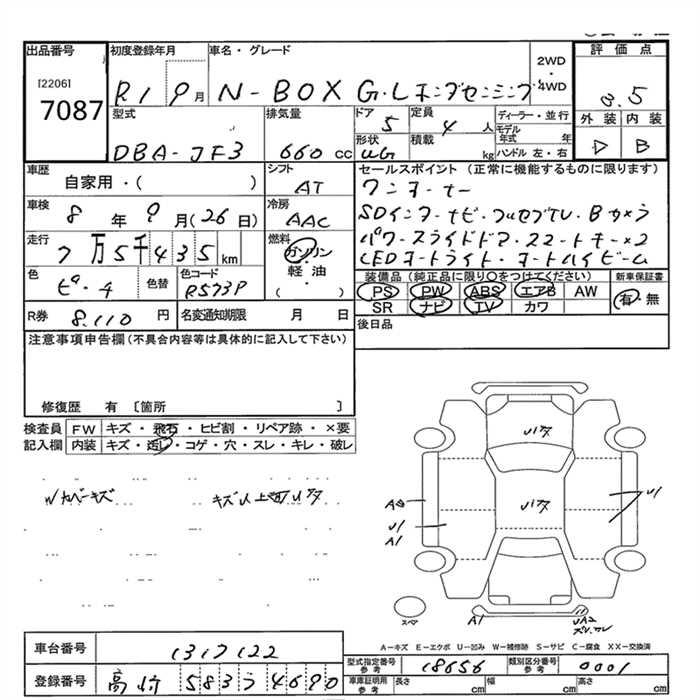 出品番号 初度登録年月 車名・グレード 2WD ・ 4WD 評価点
[2206]
7087
R1 9月 N-BOX G・Lホンダセンシング 3.5
型式 排気量 ドア 定員 ディーラー・並行 外装 内装
DBA-JF3 660cc 5 4人 モデル年式 年
形状 積載 kg ハンドル 左・右 D B
車歴 シフト セールスポイント(正常に機能するものに限ります)
自家用・( ) AT ワンオーナー
車検 冷房 SDインターナビ・フルセグTV・Bカメラ
8年9月(26日) AAC パワースライドドア・スマートキー×2
走行 燃料 LEDオートライト・オートハイビーム
7万5千435km ガソリン・軽油( )
装備品(純正品に限り○をつけてください) 新車保証書
色 色替 色コード PS PW ABS エアB AW 有・無
R573P SR ナビ TV カワ
R券 8,110円 名変通知期限 月 日 後日品
注意事項申告欄(不具合内容等は具体的に記入して下さい)
修復歴 有〔箇所 〕
検査員 FW キズ・飛石・ヒビ割・リペア跡・×要
記入欄 内装 キズ・汚レ・コゲ・穴・スレ・キレ・破レ
Wカバーキズ
U1
U1
A1
A1
UA2
スペア
A-キズ E-エクボ U-凹み W-補修跡 S-サビ C-腐食 XX-交換済
車台番号 1317122
型式指定番号 参考 18656 類別区分番号 参考 0001
登録番号 高崎 583 う 4690
車庫証明用 参考 長さ cm 幅 cm 高さ cm